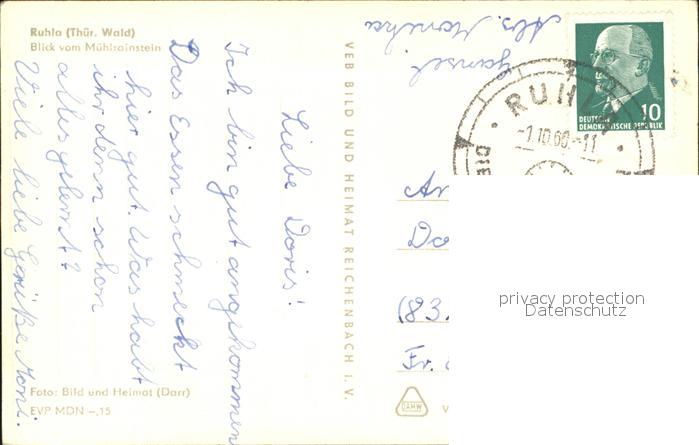 Ruhla (Thür. Wald)
Blick vom Mühlrainstein
Liebe Doris!
Ich bin gut angekommen
Das Essen schmeckt
hier gut. Was habt
ihr denn schon
alles gelernt?
Viele liebe Grüße Moni.
Foto: Bild und Heimat (Darr)
EVP MDN -,15
VEB BILD UND HEIMAT REICHENBACH I. V.
Abs. Monika
RUHLA
-1.10.66.-11
10
DEUTSCHE
DEMOKRATISCHE REPUBLIK
An
Do
(83.
Fr.
DAMW
V
privacy protection
Datenschutz